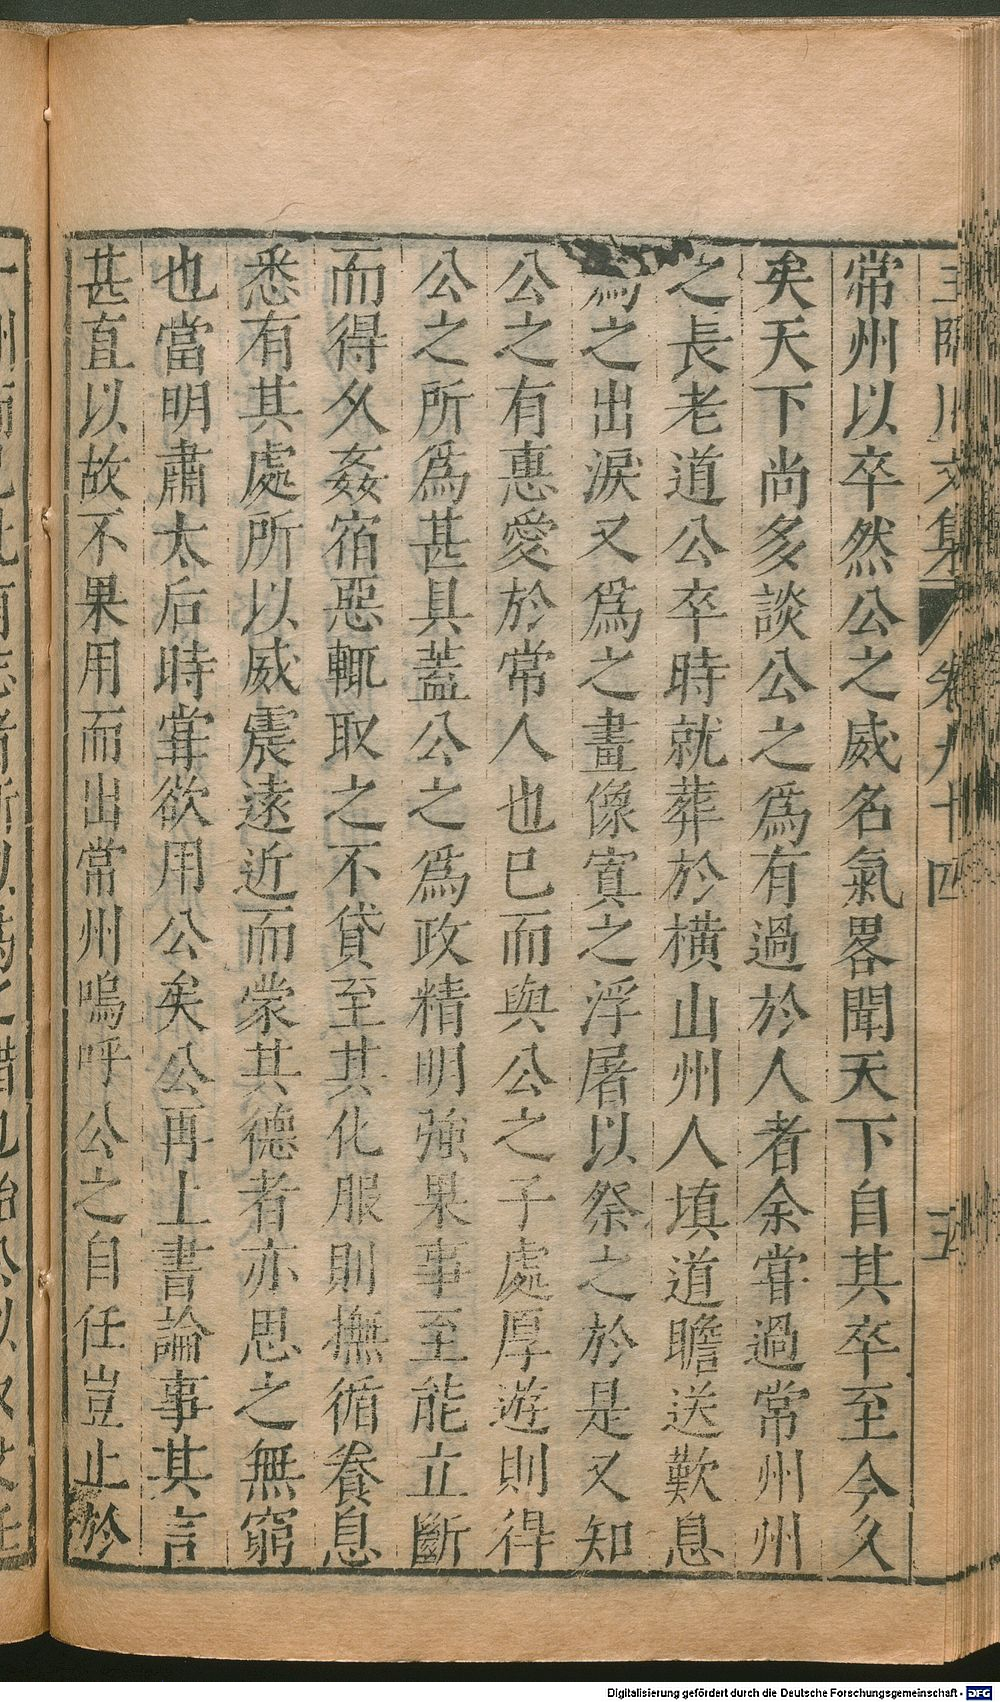 王臨川文集 卷九十四 五
常州以卒然公之威名氣畧聞天下自其卒至今久
矣天下尚多談公之爲有過於人者余嘗過常州州
之長老道公卒時就葬於橫山州人填道瞻送歎息
爲之出淚又爲之畫像寘之浮屠以祭之於是又知
公之有惠愛於常人也已而與公之子處厚遊則得
公之所爲甚具蓋公之爲政精明強果事至能立斷
而得久姦宿惡輒取之不貸至其化服則撫循養息
悉有其處所以威震遠近而蒙其德者亦思之無窮
也當明肅太后時嘗欲用公矣公再上書論事其言
甚直以故不果用而出常州嗚呼公之自任豈止於
Digitalisierung gefördert durch die Deutsche Forschungsgemeinschaft - DFG